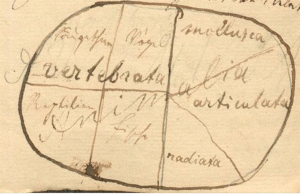 Säugethiere Vögel mollusca
vertebrata
Animalia
Reptilien articulata
Fische
radiata